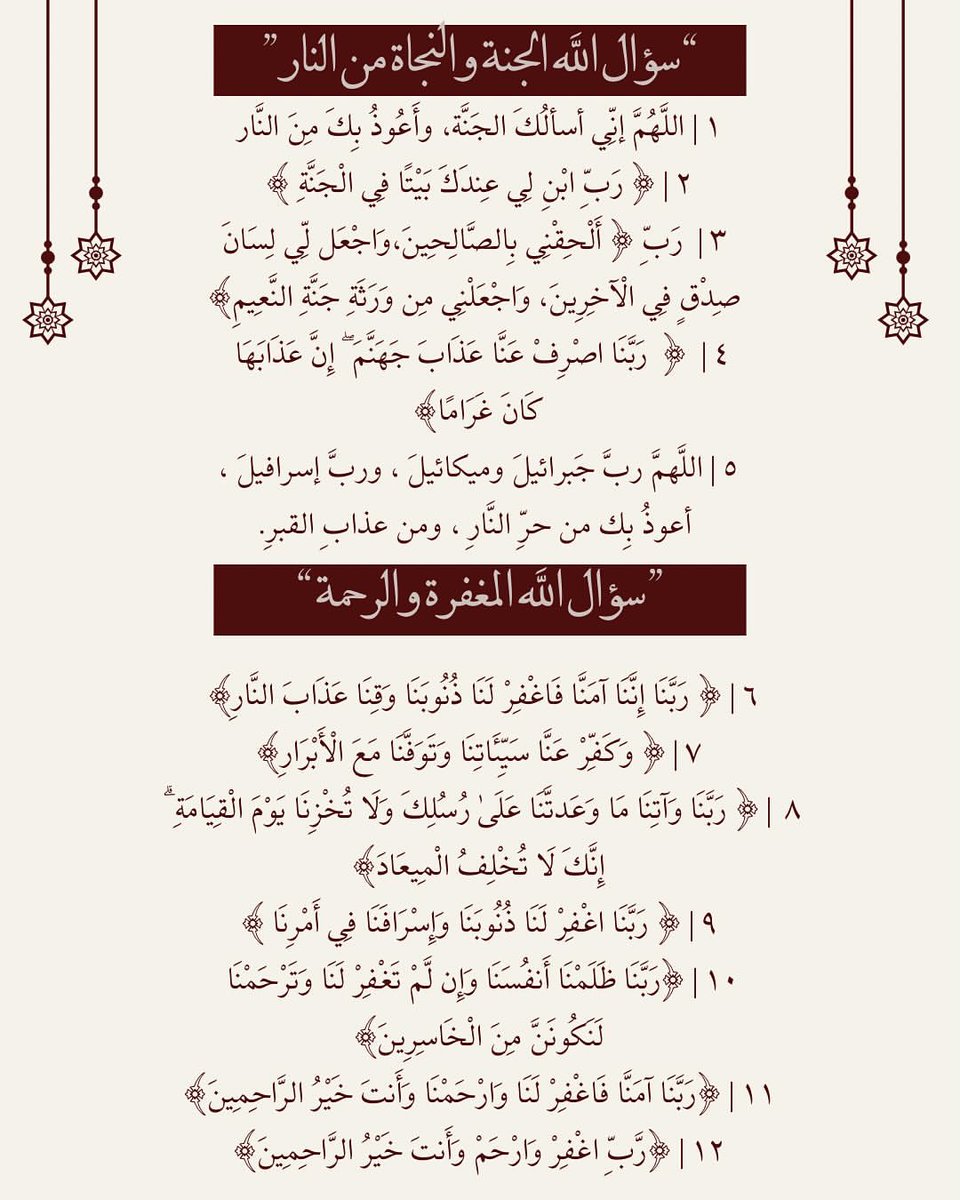 “سؤال الله الجنة والنجاة من النار”
١ | اللَّهُمَّ إنِّي أسألُكَ الجَنَّة، وأَعُوذُ بِكَ مِنَ النَّار
٢ | ﴿ رَبِّ ابْنِ لِي عِندَكَ بَيْتًا فِي الْجَنَّةِ ﴾
٣ | رَبِّ ﴿ أَلْحِقْنِي بِالصَّالِحِينَ،وَاجْعَل لِّي لِسَانَ
صِدْقٍ فِي الْآخِرِينَ، وَاجْعَلْنِي مِن وَرَثَةِ جَنَّةِ النَّعِيمِ﴾
٤ | ﴿ رَبَّنَا اصْرِفْ عَنَّا عَذَابَ جَهَنَّمَ ۖ إِنَّ عَذَابَهَا
كَانَ غَرَامًا﴾
٥ | اللَّهمَّ ربَّ جَبرائيلَ وميكائيلَ ، وربَّ إسرافيلَ ،
أعوذُ بِك من حرِّ النَّارِ ، ومن عذابِ القبرِ.
”سؤال الله المغفرة والرحمة“
٦ | ﴿ رَبَّنَا إِنَّنَا آمَنَّا فَاغْفِرْ لَنَا ذُنُوبَنَا وَقِنَا عَذَابَ النَّارِ﴾
٧ | ﴿ وَكَفِّرْ عَنَّا سَيِّئَاتِنَا وَتَوَفَّنَا مَعَ الْأَبْرَارِ﴾
٨ | ﴿ رَبَّنَا وَآتِنَا مَا وَعَدتَّنَا عَلَىٰ رُسُلِكَ وَلَا تُخْزِنَا يَوْمَ الْقِيَامَةِ ۗ
إِنَّكَ لَا تُخْلِفُ الْمِيعَادَ﴾
٩ | ﴿ رَبَّنَا اغْفِرْ لَنَا ذُنُوبَنَا وَإِسْرَافَنَا فِي أَمْرِنَا ﴾
١٠ | ﴿رَبَّنَا ظَلَمْنَا أَنفُسَنَا وَإِن لَّمْ تَغْفِرْ لَنَا وَتَرْحَمْنَا
لَنَكُونَنَّ مِنَ الْخَاسِرِينَ﴾
١١ | ﴿رَبَّنَا آمَنَّا فَاغْفِرْ لَنَا وَارْحَمْنَا وَأَنتَ خَيْرُ الرَّاحِمِينَ﴾
١٢ | ﴿رَّبِّ اغْفِرْ وَارْحَمْ وَأَنتَ خَيْرُ الرَّاحِمِينَ﴾